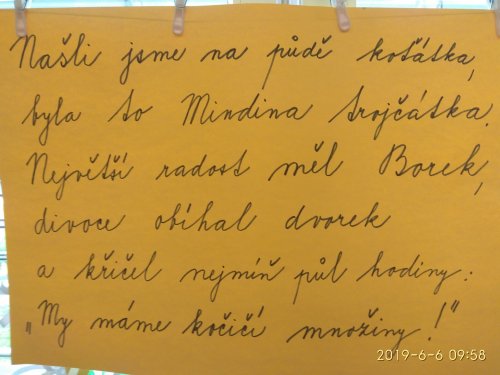 Našli jsme na půdě koťátka,
byla to Mindina trojčátka.
Největší radost měl Borek,
divoce obíhal dvorek
a křičel nejmíň půl hodiny:
„My máme kočičí množiny!“
2019-6-6 09:58